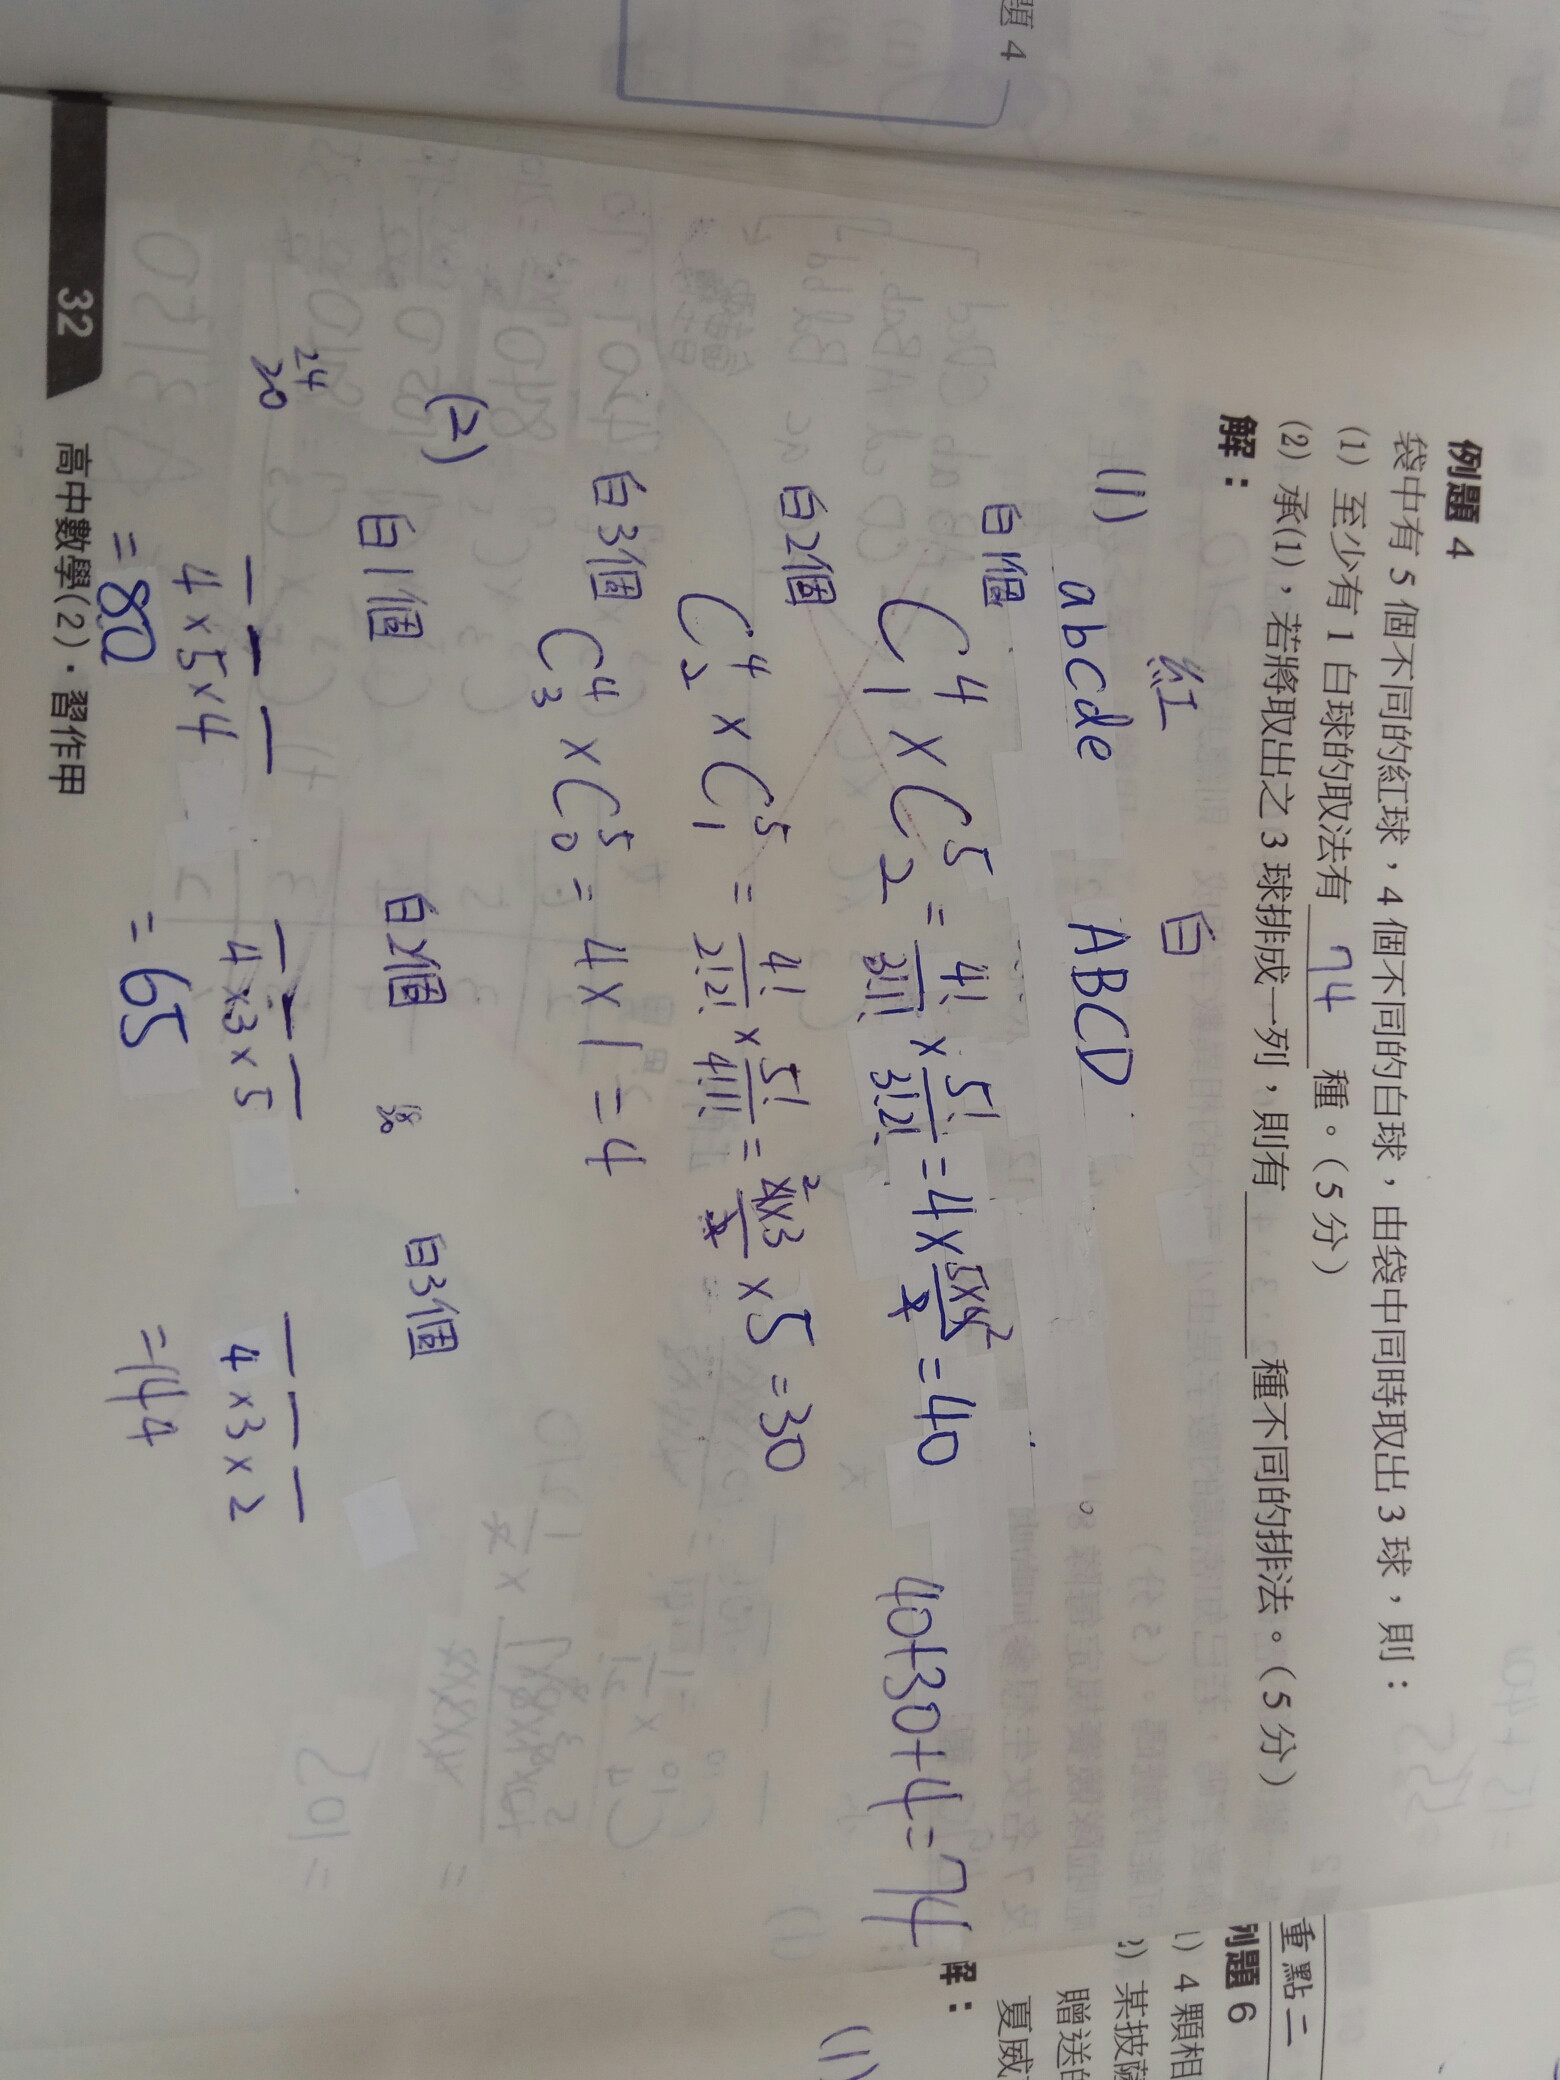 題 4
例題 4
袋中有 5 個不同的紅球，4 個不同的白球，由袋中同時取出 3 球，則：
(1) 至少有 1 白球的取法有 74 種。(5 分)
(2) 承(1)，若將取出之 3 球排成一列，則有 種不同的排法。(5 分)
解：
紅 白
(1) abcde ABCD
白1個 C⁴₁ × C⁵₂ = 4!/3!1! × 5!/3!2! = 4 × 5×4²/2 = 40
40+30+4=74
白2個 C⁴₂ × C⁵₁ = 4!/2!2! × 5!/4!1! = 4²×3/2 × 5 = 30
白3個 C⁴₃ × C⁵₀ = 4×1 = 4
(2) 白1個 白2個 白3個
24
20
4×5×4 4×3×5 4×3×2
=80 =65 =144
32 高中數學(2)．習作甲
重點二
例題 6
4 顆相
某披薩
贈送的
夏威
解：
(1)